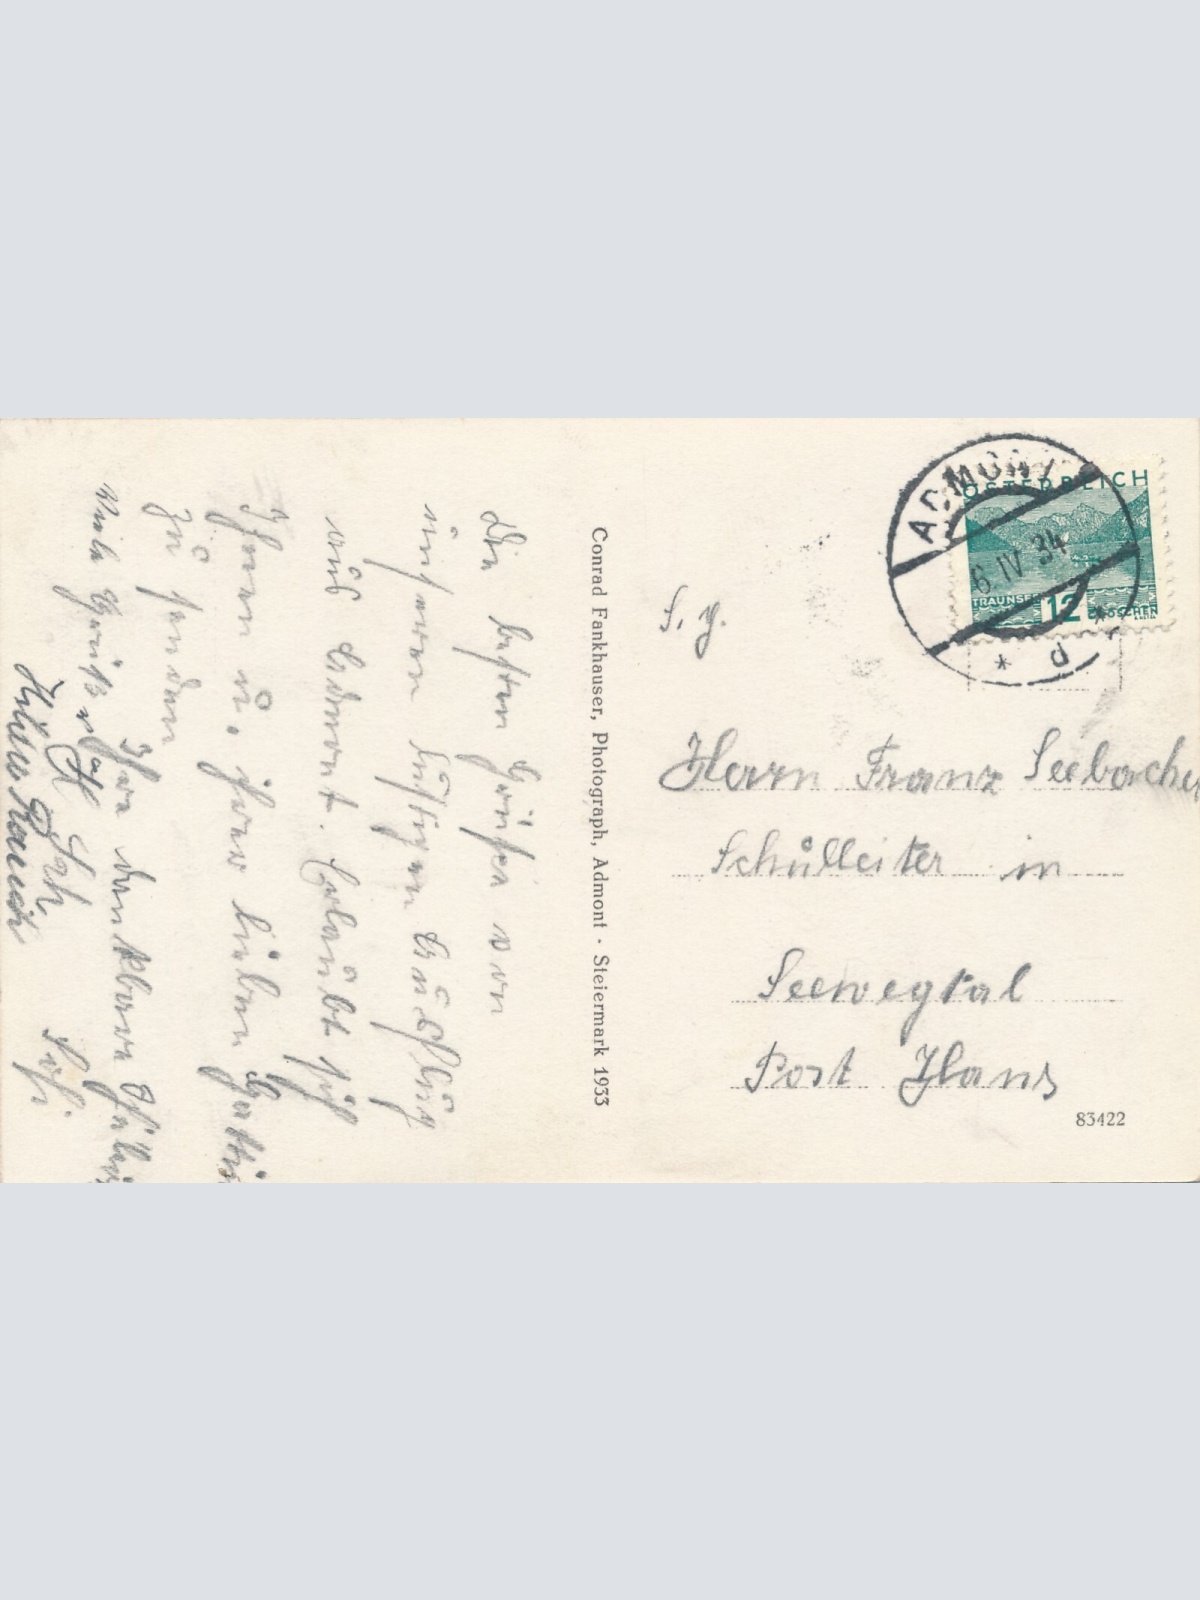 Die besten Grüße von
unserem lustigen Ausflug
aus Admont. Erlaubt sich
Ihnen u. ihrer lieben Gattin
zu senden
Ihre dankbare Schülerin
Viele Grüße
Conrad Fankhauser, Photograph, Admont · Steiermark 1933
ADMONT
6. IV 34
* d *
ÖSTERREICH
TRAUNSEE 12 GROSCHEN
Herrn Franz Seebacher
Schulleiter in
Seewegtal
Post Haus
83422